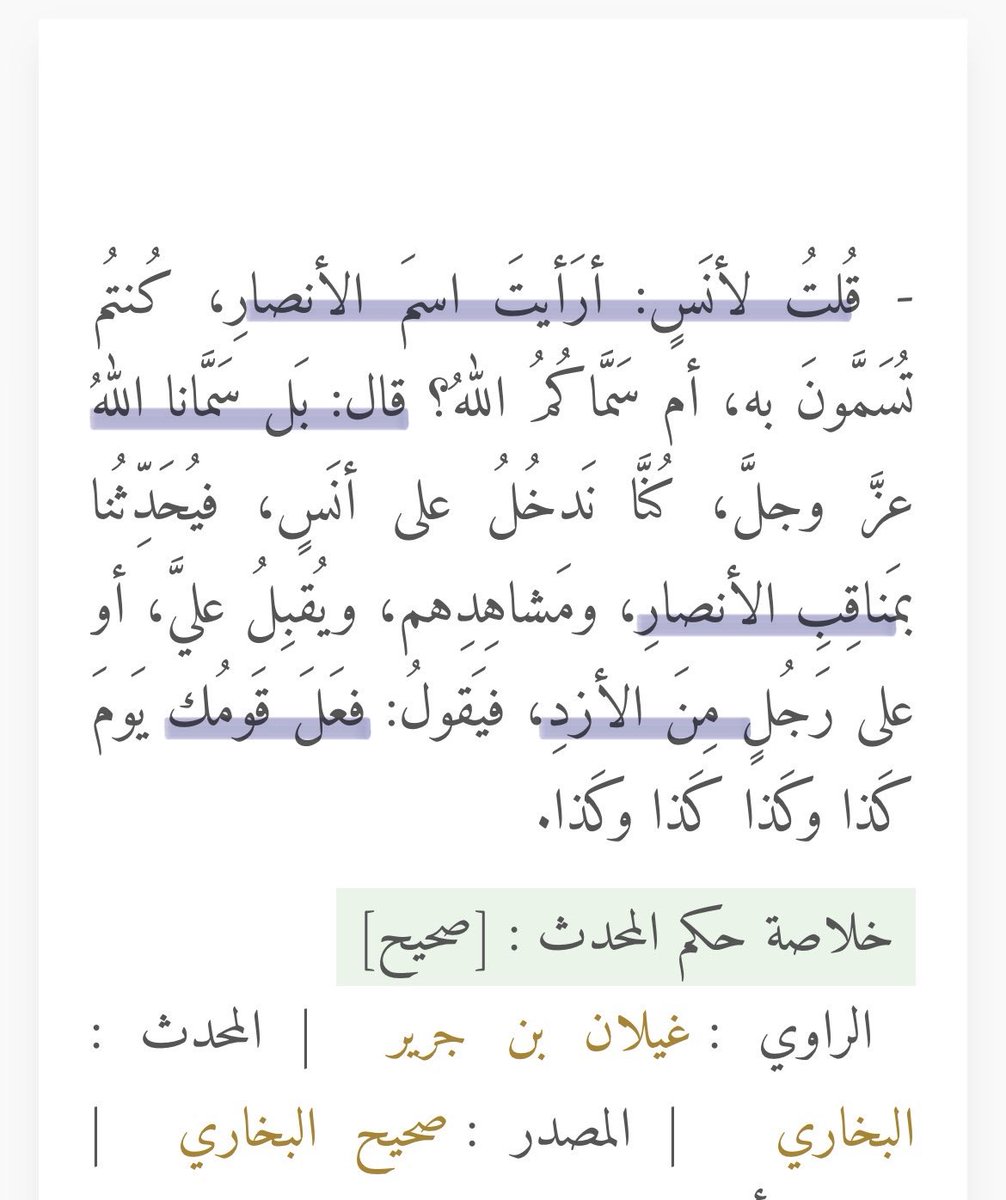 - قُلتُ لأنَسٍ: أرَأيتَ اسمَ الأنصارِ، كُنتمُ
تُسَمَّونَ به، أم سَمَّاكُمُ اللهُ؟ قال: بَل سَمَّانا اللهُ
عزَّ وجلَّ، كُنَّا نَدخُلُ على أنَسٍ، فيُحَدِّثُنا
بمَناقِبِ الأنصارِ، ومَشاهِدِهم، ويُقبِلُ عليَّ، أو
على رَجُلٍ مِنَ الأزدِ، فيَقولُ: فعَلَ قَومُك يَومَ
كَذا وكَذا كَذا وكَذا.
خلاصة حكم المحدث : [صحيح]
الراوي : غيلان بن جرير | المحدث :
البخاري | المصدر : صحيح البخاري |